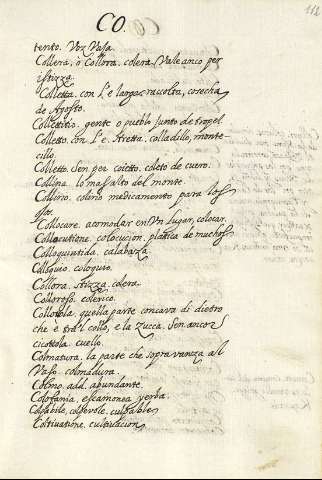 CO.
112
tento. Voz Vasa.
Collera, o Collora. colera. Vale anco per
istizza.
Colletta. con l'e larga, raccolta, cosecha
de Agosto.
Collettitio. gente o pueblo junto de tropel
Colletto. con l'e. stretta. colladillo, monte-
cillo.
Colletto. Sen per coietto. coleto de cuero.
Collina. lo mas alto del monte
Collirio. colirio medicamento para los
ojos.
Collocare. acomodar en Vn lugar, colocar.
Collocutione. colocucion. platica de muchos
Colloquintida. calabaza
Colloquio. coloquio.
Collora. stizza. colera
Colloroso. colerico.
Collotola. quella parte concava di dietro
che è tra'l collo, e la zucca. Sen ancor
cicottola. cuello.
Colmatura. la parte che sopravanza al
Vaso. colmadura.
Colmo. add. abundante.
Colofonia. escamonea yerba.
Colpabile, colpevole. culpable
Coltivatione. cultivacion